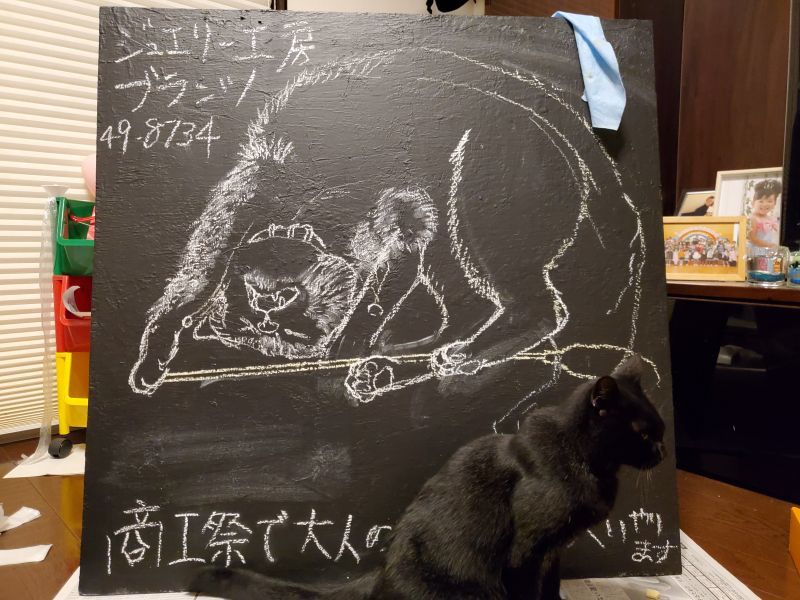 ジュエリー工房
プランツ
49-8734
商工祭で大人の
やり
ます